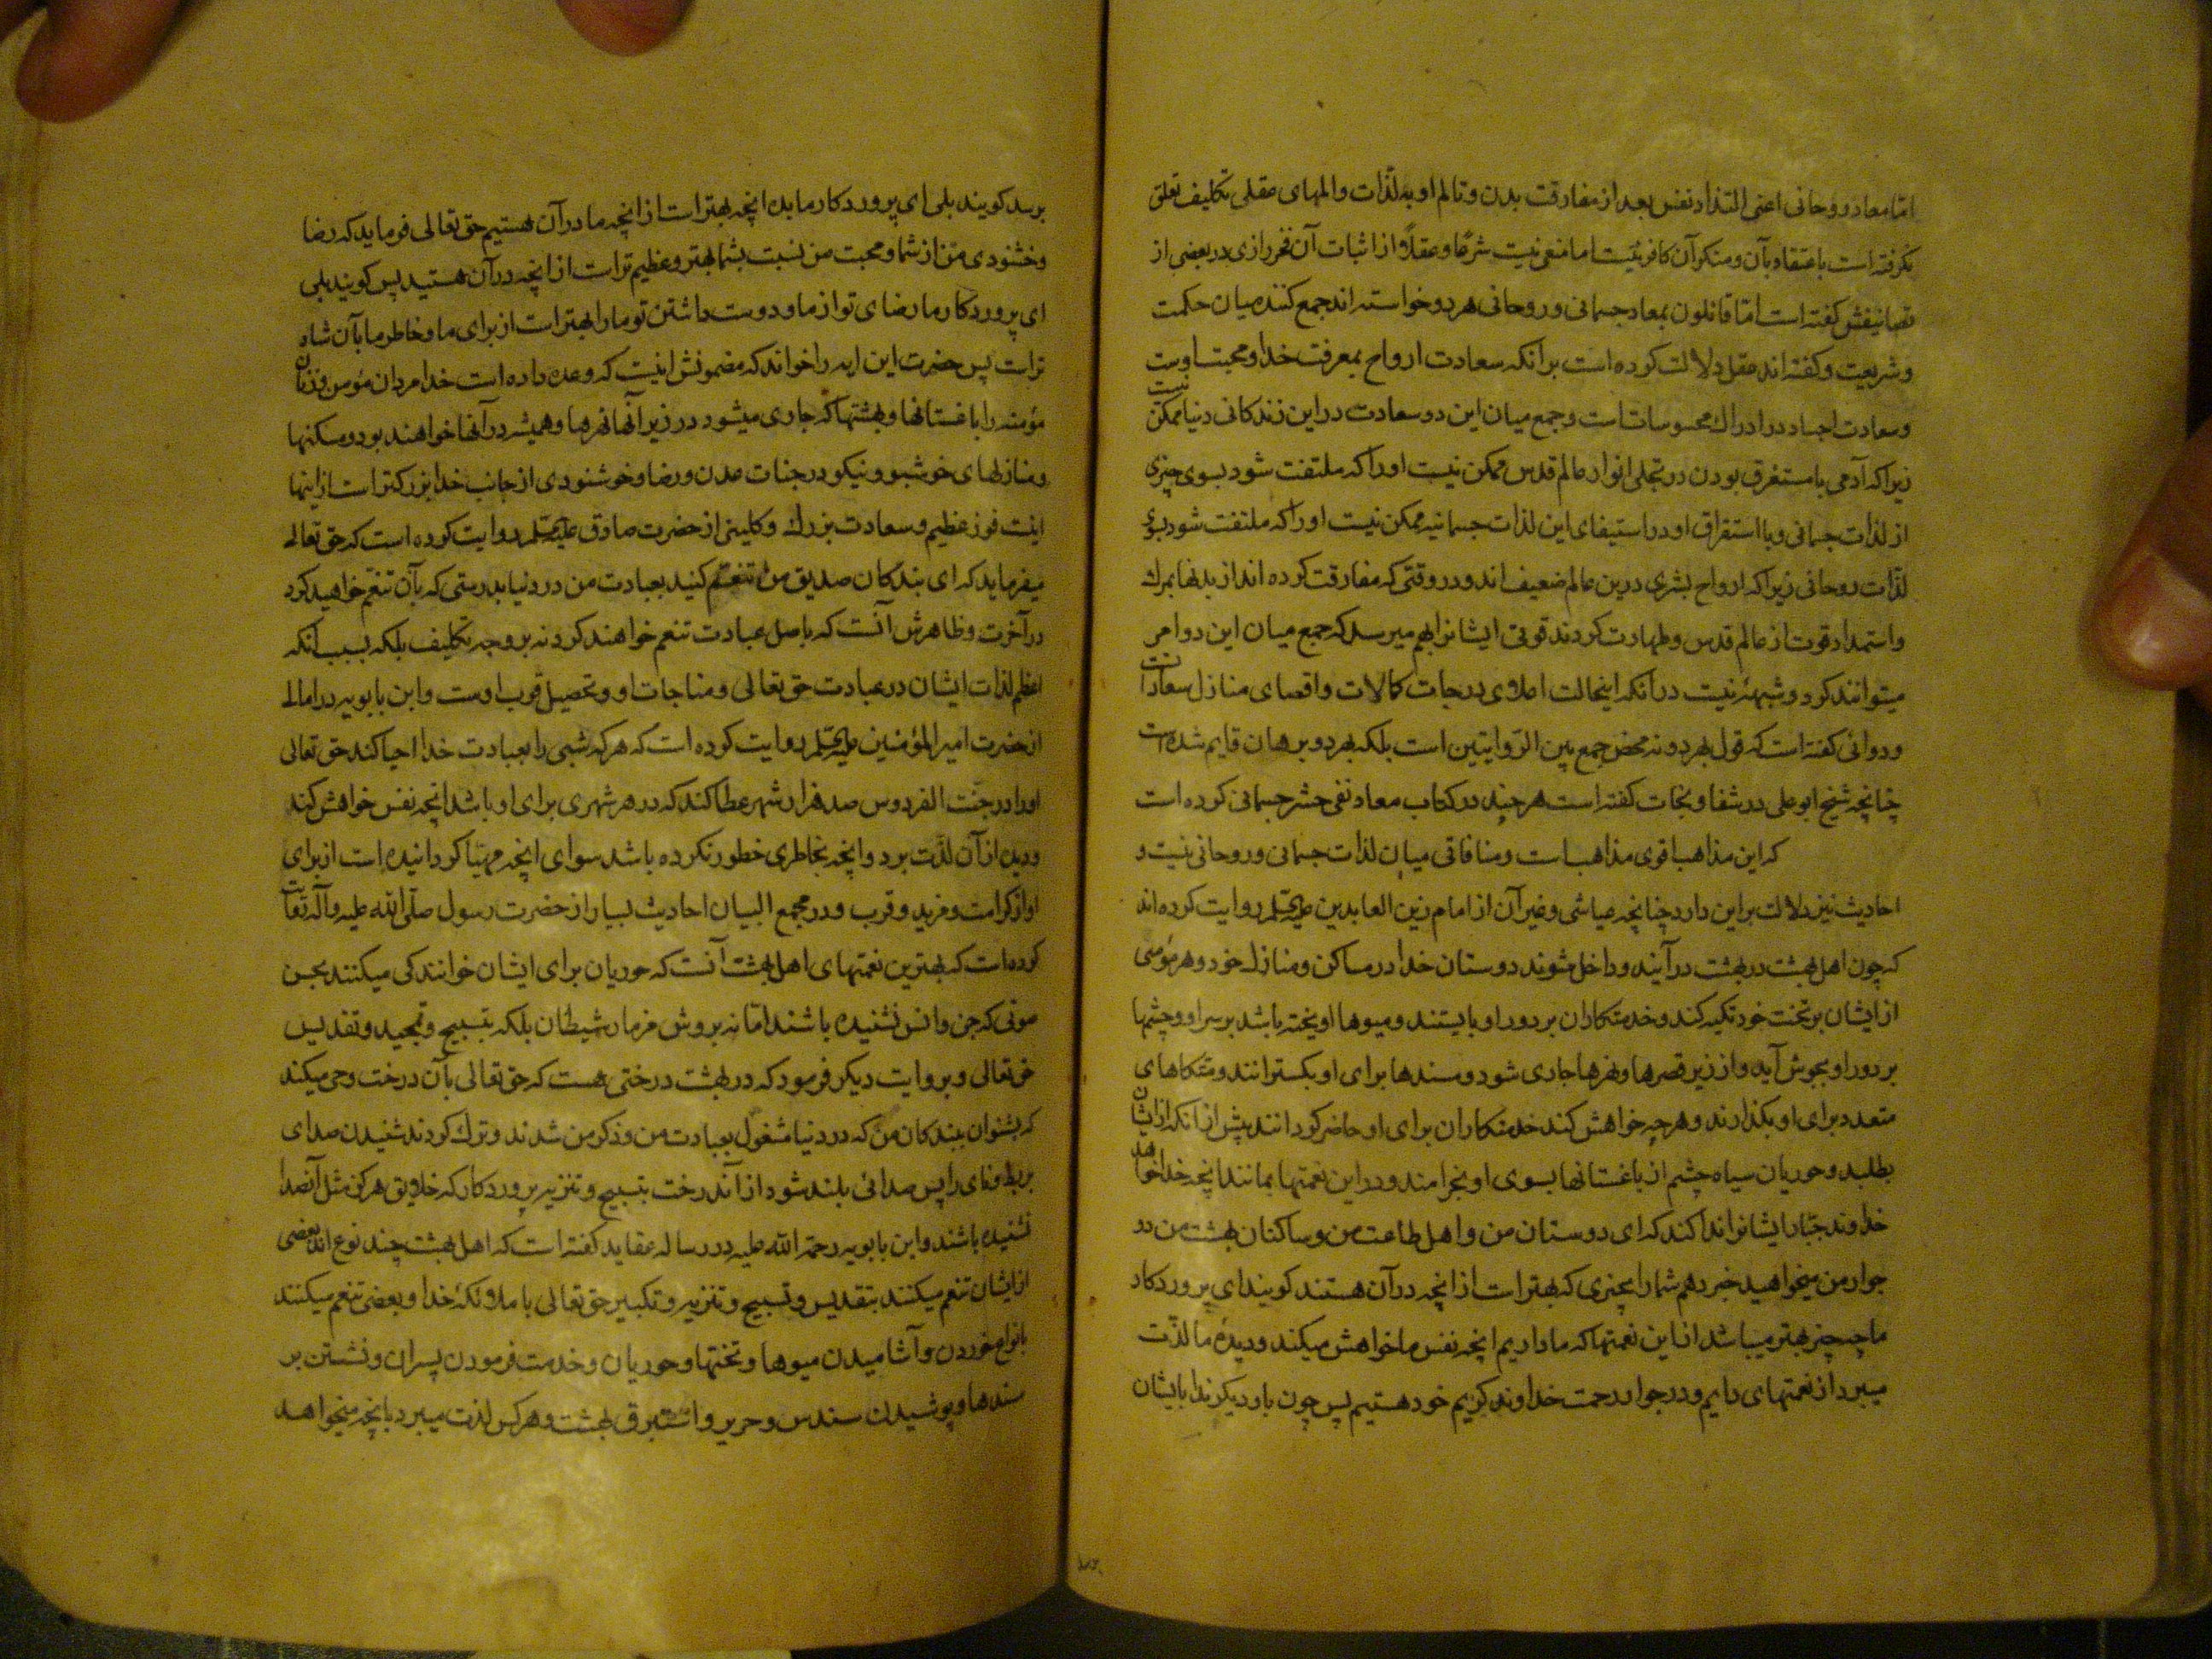 اما معاد روحانی اعنی التذاذ نفس بعد از مفارقت بدن و تالم او به لذّات و المهای عقلی تکلیف تعلق
نگرفته است باعتقاد بآن و منکر آن کافر نیست اما منعی نیست شرعًا و عقلًا از اثبات آن فخر رازی در بعضی از
تصانیفش گفته است اما قائلون بمعاد جسمانی و روحانی هر دو خواسته اند جمع کنند میان حکمت
و شریعت و گفته اند عقل دلالت کرده است بر آنکه سعادت ارواح بمعرفت خدا و محبت اوست
و سعادت اجساد در ادراك محسوسات است و جمع میان این دو سعادت در این زندکانی دنیا ممکن نیست
زیرا که آدمی با مستغرق بودن در تجلی انوار عالم قدس ممکن نیست او را که ملتفت شود بسوی چیزی
از لذات جسمانی و با استغراق او در استیفای این لذات جسمانیه ممکن نیست او را که ملتفت شود بسوی
لذّات روحانی زیرا که ارواح بشری درین عالم ضعیف اند و در وقتی که مفارقت کرده اند از بدنها بمرك
و استمداد قوت از عالم قدس و طهارت کردند قوتی ایشانرا بهم میرسد که جمع میان این دو امر
میتوانند کرد و شبهۀ نیست در آنکه اینحالت اعلای درجات کمالات و اقصای منازل سعادات است
و دوانی کفته است که قول بهر دو نه محض جمع بین الروایتین است بلکه بهر دو برهان قایم شده است
چنانچه شیخ ابوعلی در شفا و نجات کفته است هر چند در کتاب معاد نفی حشر جسمانی کرده است
که این مذاهب اقوی مذاهب است و منافاتی میان لذات جسمانی و روحانی نیست و
احادیث نیز دلالت بر این دارد چنانچه عیاشی و غیر آن از امام زین العابدین علیه‌السلم روایت کرده اند
که چون اهل بهشت در بهشت در آیند و داخل شوند دوستان خدا در مساکن و منازل خود و هر مؤمنی
از ایشان بر تخت خود تکیه کند و خدمتکاران بر دور او بایستند و میوها اویخته باشد بر سر او و چشمها
بر دور او بجوش آید و از زیر قصرها و نهرها جاری شود و مسندها برای او بکسترانند و متکاهای
متعدد برای او بکذارند و هر چه خواهش کند خدمتکاران برای او حاضر کردانند پیش از آنکه از ایشان
بطلبد و حوریان سیاه چشم از باغستانها بسوی او بخرامند و در این نعمتها بمانند آنچه خدا خواهد
خداوند جبّار ایشانرا ندا کند که ای دوستان من و اهل طاعت من و ساکنان بهشت من در
جوار من میخواهید خبر دهم شما را بچیزی که بهتر است از انچه در آن هستند کویند ای پروردکار
ما چه چیز بهتر میباشد از این نعمتها که ما داریم انچه نفس ما خواهش میکند و دیدۀ ما لذّت
میبرد از نعمتهای دایم و در جوار رحمت خداوند کریم خود هستیم پس چون بار دیکر ندا بایشان
برسد
برسد کویند بلی ای پروردکار ما بده انچه بهتر است از انچه ما در آن هستیم حق تعالی فرماید که رضا
و خشنودی من از شما و محبت من نسبت بشما بهتر و عظیم تر است از انچه در آن هستید پس کویند بلی
ای پروردکار ما رضای تو از ما و دوست داشتن تو ما را بهتر است از برای ما و خاطر ما بآن شاد
تر است پس حضرت این ایه را خواند که مضمونش اینست که وعده داده است خدا مردان مؤمن و زنان
مؤمنه را باغستانها و بهشتها که جاری میشود در زیر آنها نهرها و همیشه در آنها خواهند بود و مسکنها
و منازلهای خوشبو و نیکو در جنات عدن و رضا و خوشنودی از جانب خدا بزرکتر است از اینها
اینست فوز عظیم و سعادت بزرك و کلینی از حضرت صادق علیه‌السلم روایت کرده است که حق تعالی
میفرماید که ای بندکان صدیق من تنعّم کنید بعبادت من در دنیا بدرستی که بآن تنعّم خواهید کرد
در آخرت و ظاهرش آنست که باصل عبادت تنعم خواهند کرد نه بر وجه تکلیف بلکه بسبب آنکه
اعظم لذات ایشان در عبادت حق تعالی و مناجات او و تحصیل قرب اوست و ابن بابویه در امالی
از حضرت امیر المؤمنین علیه‌السلم روایت کرده است که هر که شبی را بعبادت خدا احیا کند حق تعالی
او را در جنّت الفردوس صد هزار شهر عطا کند که در هر شهری برای او باشد انچه نفس خواهش کند
و دیده از آن لذّت برد و انچه بخاطری خطور نکرده باشد سوای انچه مهیّا کردانیده است از برای
او از کرامت و مزید و قرب و در مجمع البیان احادیث بسیار از حضرت رسول صلّی الله علیه و آله روایت
کرده است که بهترین نعمتهای اهل بهشت آنست که حوریان برای ایشان خوانندکی میکنند بحسن
صوتی که جن و انس نشنیده باشند امّا نه بروش مزمار شیطان بلکه بتسبیح و تمجید و تقدیس
حق تعالی و بروایت دیکر فرمود که در بهشت درختی هست که حق تعالی بآن درخت وحی میکند
که بشنوان ببندکان من که در دنیا مشغول بعبادت من و ذکر من شدند و ترك کردند شنیدن صدای
بربط و نای را پس صدائی بلند شود از آندرخت بتسبیح و تنزیه پروردکار که خلایق هرکز مثل آنصدا
نشنیده باشند و ابن بابویه رحمة الله علیه در رساله عقاید کفته است که اهل بهشت چند نوع اند بعضی
از ایشان تنعم میکنند بتقدیس و تسبیح و تنزیه و تکبیر حق تعالی با ملائکۀ خدا و بعضی تنعم میکنند
بانواع خوردن و آشامیدن میوها و تختها و حوریان و خدمت فرمودن پسران و نشستن بر
مسندها و پوشیدن سندس و حریر و استبرق بهشت و هر کس لذت میبرد بانچه میخواهد